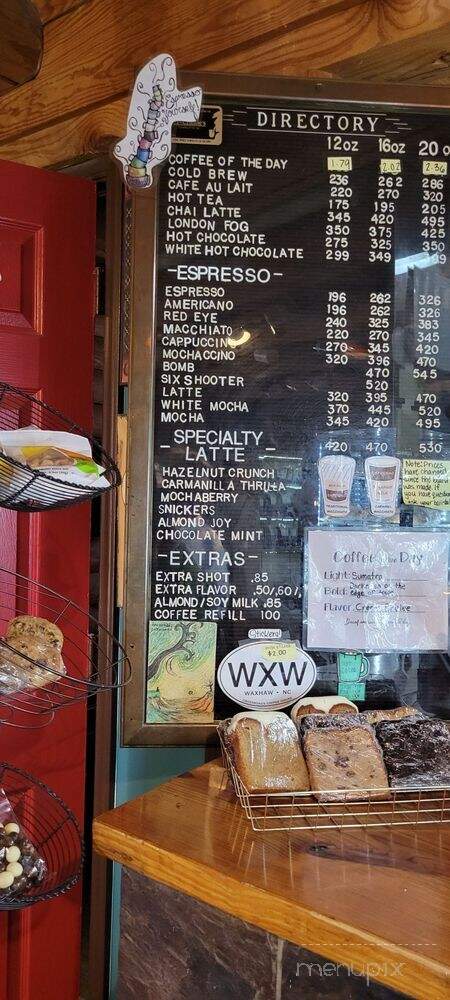 Espresso
Yourself!
DIRECTORY
12oz 16oz 20 o
COFFEE OF THE DAY 1.79 2.02 2.36
COLD BREW 236 262 286
CAFE AU LAIT 220 270 320
HOT TEA 175 195 205
CHAI LATTE 345 420 495
LONDON FOG 350 375 425
HOT CHOCOLATE 275 325 350
WHITE HOT CHOCOLATE 299 349
-ESPRESSO-
ESPRESSO 196 262 326
AMERICANO 196 262 326
RED EYE 240 325 383
MACCHIATO 220 270 345
CAPPUCCINO 270 345 420
MOCHACCINO 320 396 470
BOMB 470 545
SIX SHOOTER 520
LATTE 320 395 470
WHITE MOCHA 370 445 520
MOCHA 345 420 495
-SPECIALTY
LATTE- 420 470 530
HAZELNUT CRUNCH
CARMANILLA THRILLA
MOCHABERRY
SNICKERS
ALMOND JOY
CHOCOLATE MINT
Note: Prices
have changed
since this board
was made. If
you have questions
ask your barista
TRADITIONAL
MACCHIATO
CARAMEL
MACCHIATO
-EXTRAS-
EXTRA SHOT .85
EXTRA FLAVOR .50/.60/.
ALMOND/SOY MILK .85
COFFEE REFILL 100
Coffee of the Day
Light: Sumatra
Bold: Darkness on the
edge of town
Flavor: Creme Brulee
Stickers!
$2.00
WXW
WAXHAW • NC
menupix